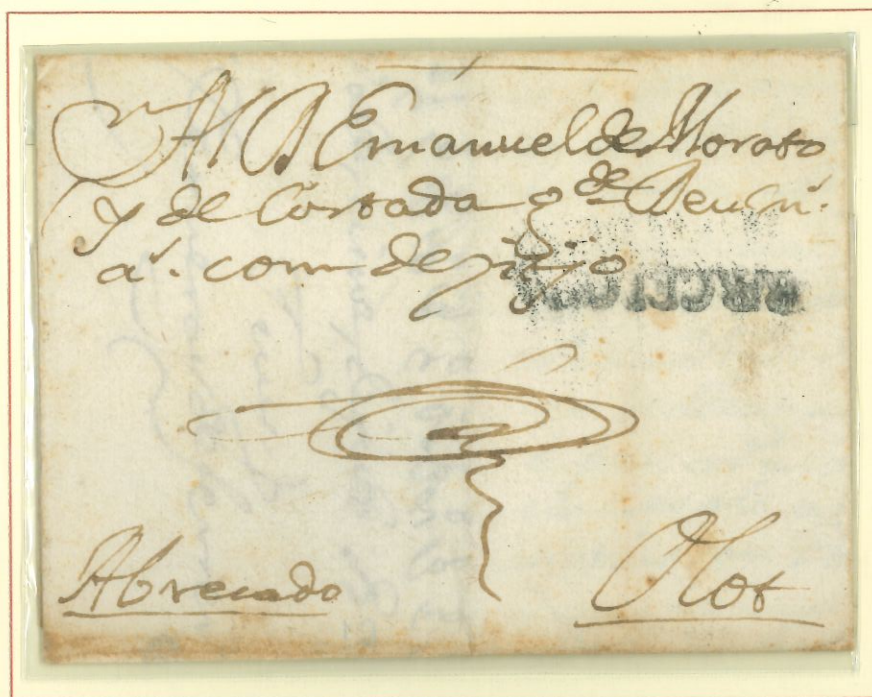 Al Sr Emanuel de Morato
y de Cortada gde. Deu
a. com de
BARCELONA
Abrecado
Olot